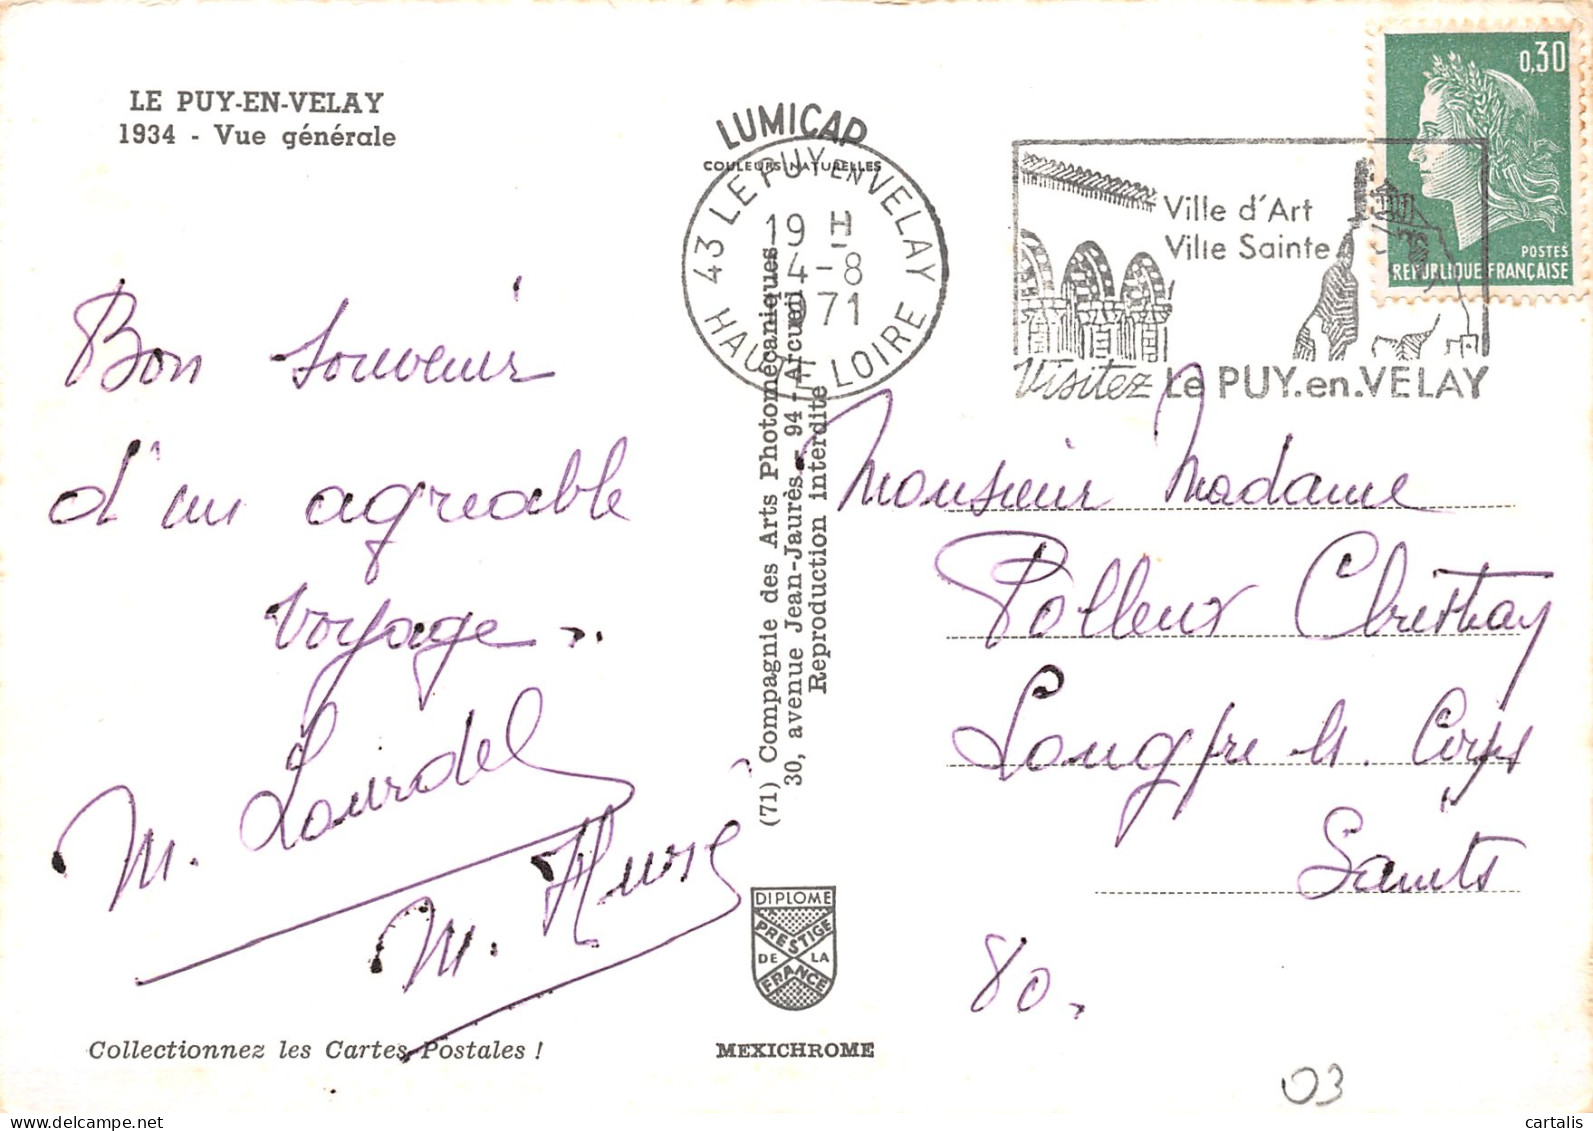 LE PUY-EN-VELAY
1934 - Vue générale
LUMICAP
COULEURS NATURELLES
43 LE PUY EN VELAY
19 H
4-8
1971
HAUTE LOIRE
Ville d'Art
Ville Sainte
Visitez Le PUY.en.VELAY
0,30
POSTES
REPUBLIQUE FRANÇAISE
Bon souvenir
d'un agréable
voyage
M. Lourdel
M.
(71) Compagnie des Arts Photomécaniques
30, avenue Jean-Jaurès - 94 - Arcueil
Reproduction interdite
Monsieur Madame
Polleux
Longpré les Corps
Saints
80.
DIPLOME
PRESTIGE
DE LA
FRANCE
Collectionnez les Cartes Postales !
MEXICHROME
03
cartalis
www.delcampe.net